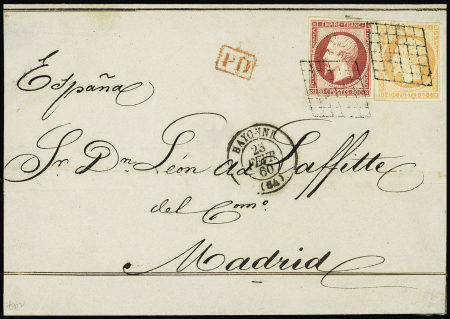 EMPIRE FRANC.
PD
España
BAYONNE
23
FEVR
60
(64)
Sr. Dn. León Ad. Laffitte
del Como.
Madrid